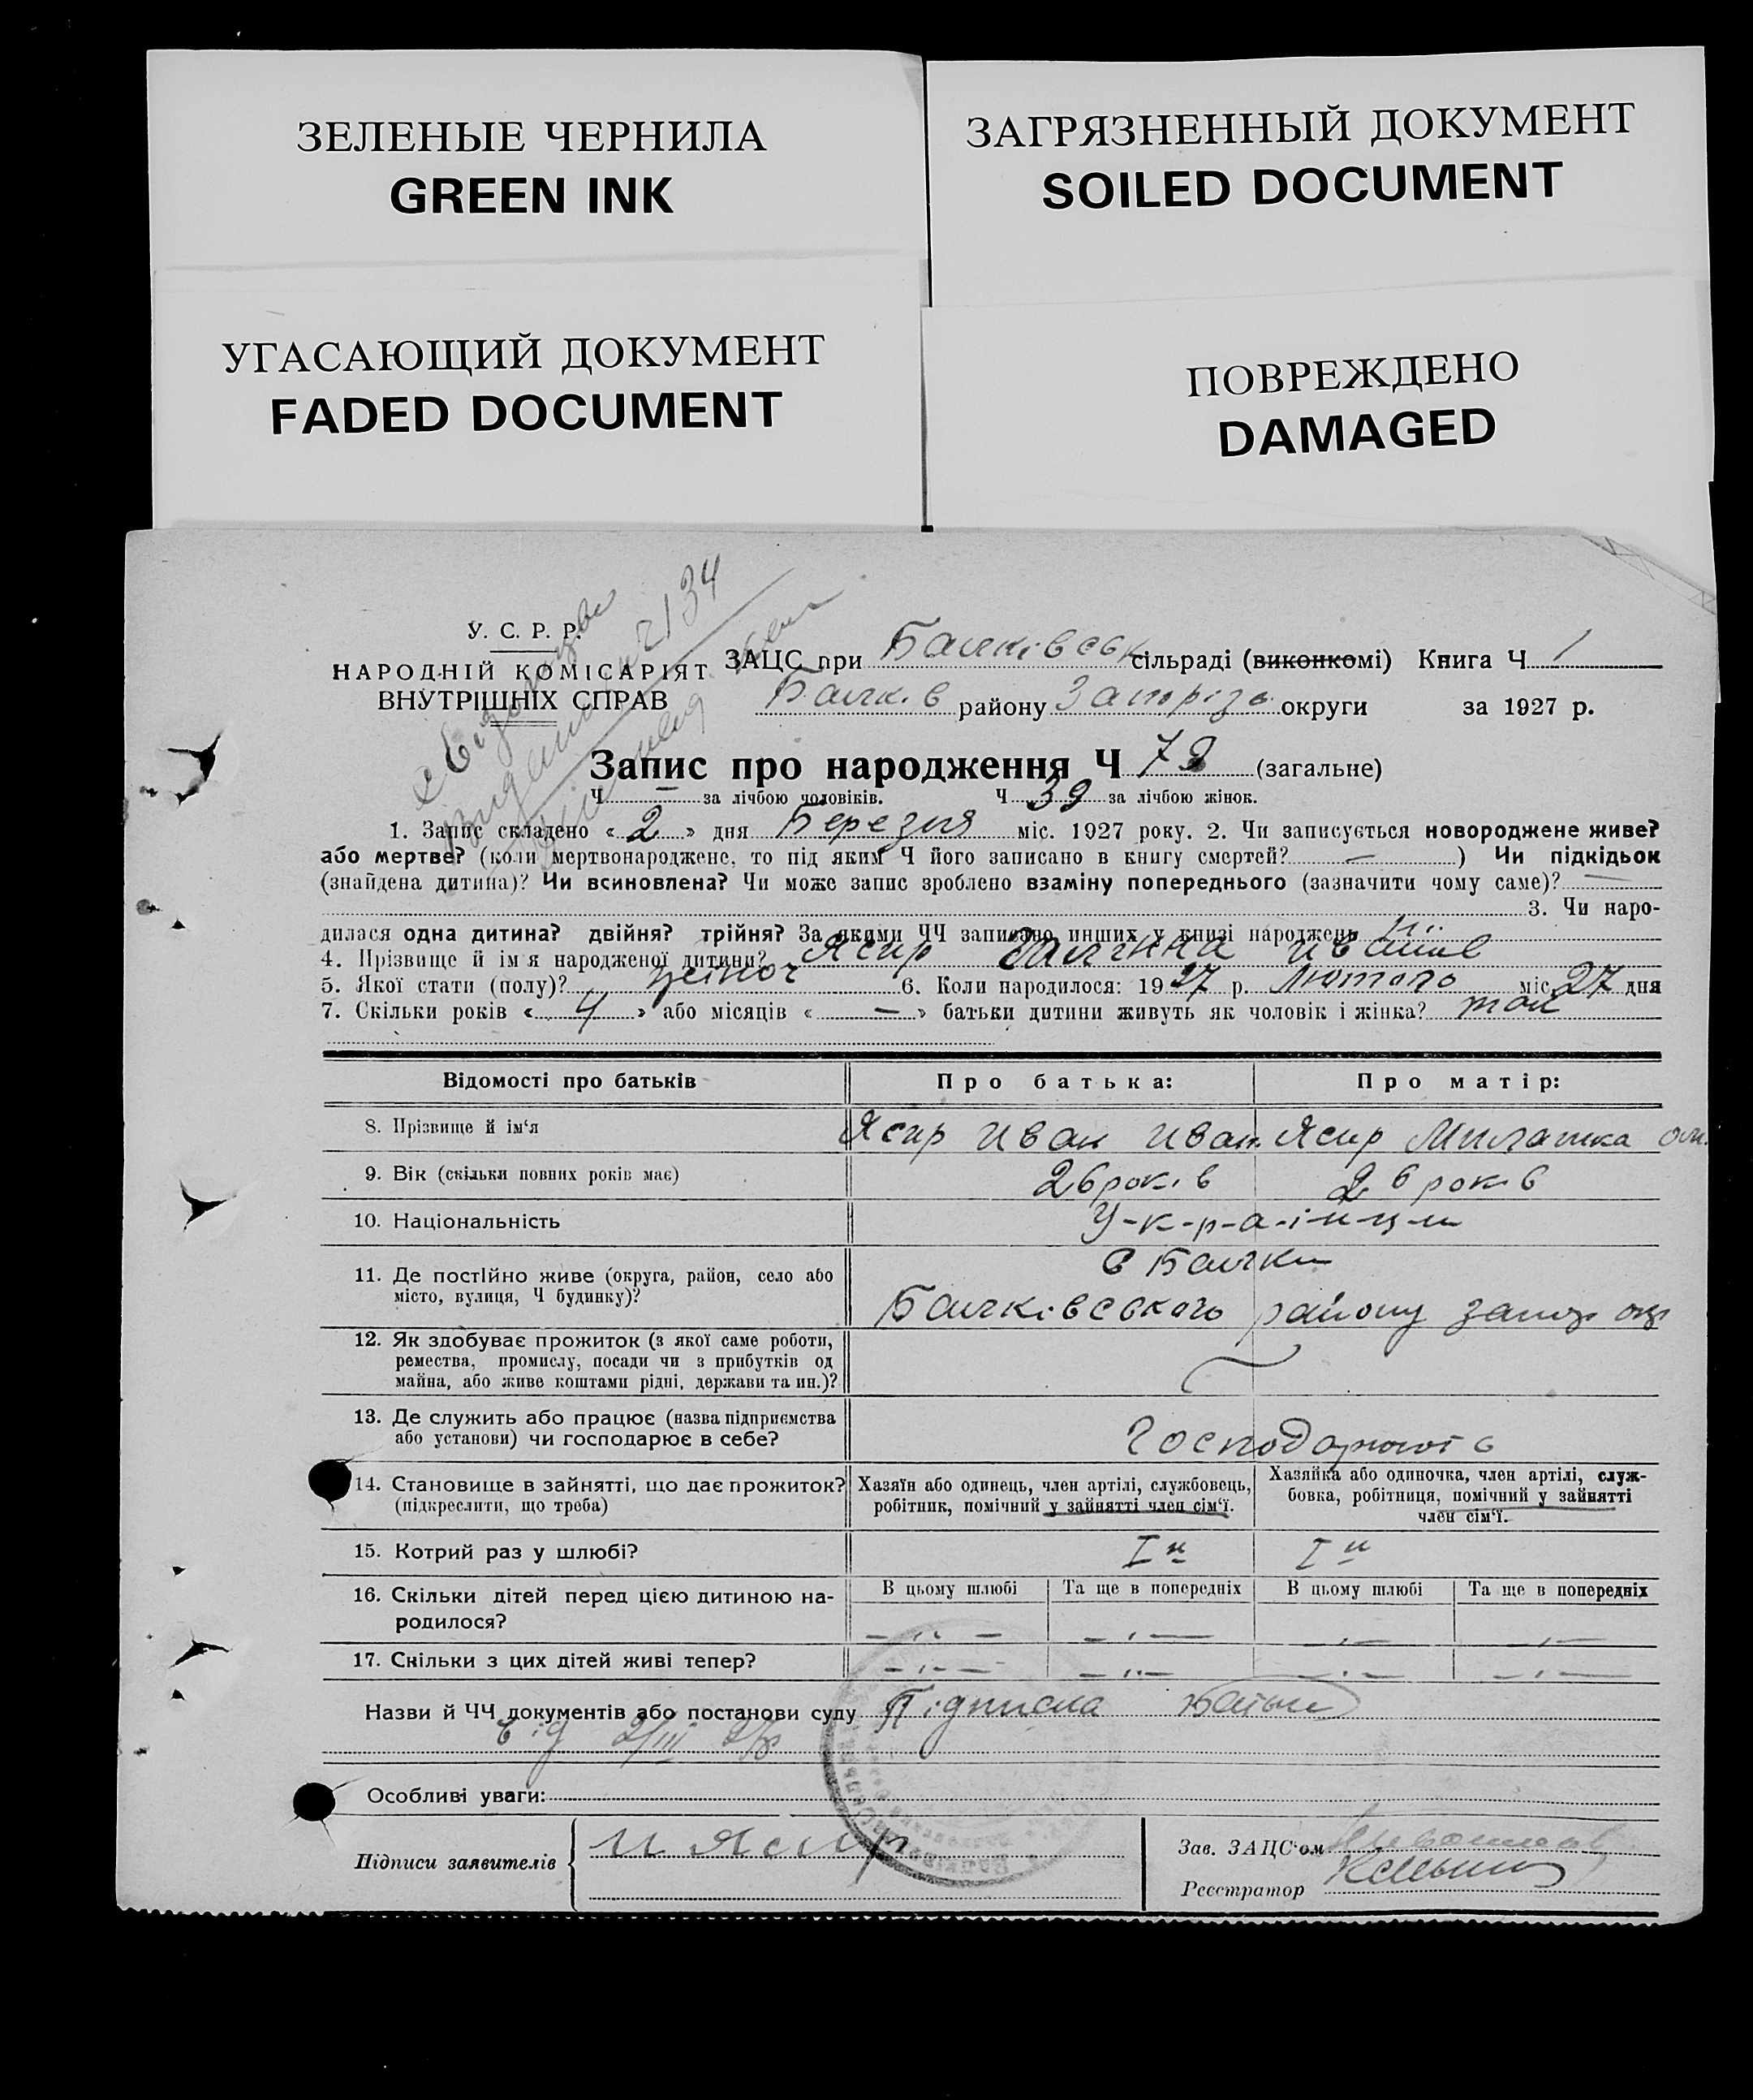 ЗЕЛЕНЫЕ ЧЕРНИЛА
GREEN INK
ЗАГРЯЗНЕННЫЙ ДОКУМЕНТ
SOILED DOCUMENT
УГАСАЮЩИЙ ДОКУМЕНТ
FADED DOCUMENT
ПОВРЕЖДЕНО
DAMAGED
У. С. Р. Р.
НАРОДНІЙ КОМІСАРІЯТ
ВНУТРІШНІХ СПРАВ
ЗАЦС при Балківськ сільраді (виконкомі) Книга Ч 1
Балків району Запоріз округи за 1927 р.
Запис про народження Ч 78 (загальне)
Ч — за лічбою чоловіків. Ч 39 за лічбою жінок.
1. Запис складено « 2 » дня Березня міс. 1927 року. 2. Чи записується новороджене живе?
або мертве? (коли мертвонароджене, то під яким Ч його записано в книгу смертей? — ) Чи підкідьок
(знайдена дитина)? Чи всиновлена? Чи може запис зроблено взаміну попереднього (зазначити чому саме)? —
3. Чи наро-
дилася одна дитина? двійня? трійня? За якими ЧЧ записано инших у книзі народжень
4. Прізвище й ім'я народженої дитини? Ясир Галчина Иван
5. Якої стати (полу)? жіноч 6. Коли народилося: 1927 р. Лютого міс. 27 дня
7. Скільки років « 4 » або місяців « — » батьки дитини живуть як чоловік і жінка? так
Відомості про батьків Про батька: Про матір:
8. Прізвище й ім'я Ясир Иван Иван. Ясир Милашка
9. Вік (скільки повних років має) 26 років 26 років
10. Національність У-к-р-а-ї-н-ц-и
11. Де постійно живе (округа, район, село або с Балки
місто, вулиця, Ч будинку)? Балківського району запор окр
12. Як здобуває прожиток (з якої саме роботи,
ремества, промислу, посади чи з прибутків од
майна, або живе коштами рідні, держави та ин.)?
13. Де служить або працює (назва підприємства
або установи) чи господарює в себе?
14. Становище в зайнятті, що дає прожиток? Хазяїн або одинець, член артілі, службовець, Хазяйка або одиночка, член артілі, служ-
(підкреслити, що треба) робітник, помічний у зайнятті член сім'ї. бовка, робітниця, помічний у зайнятті
член сім'ї.
15. Котрий раз у шлюбі? І й І й
16. Скільки дітей перед цією дитиною на- В цьому шлюбі Та ще в попередніх В цьому шлюбі Та ще в попередніх
родилося?
17. Скільки з цих дітей живі тепер?
Назви й ЧЧ документів або постанови суду Підписка
від 2/III 27р
Особливі уваги:
Підписи заявителів И Ясир Зав. ЗАЦС'ом
Реєстратор